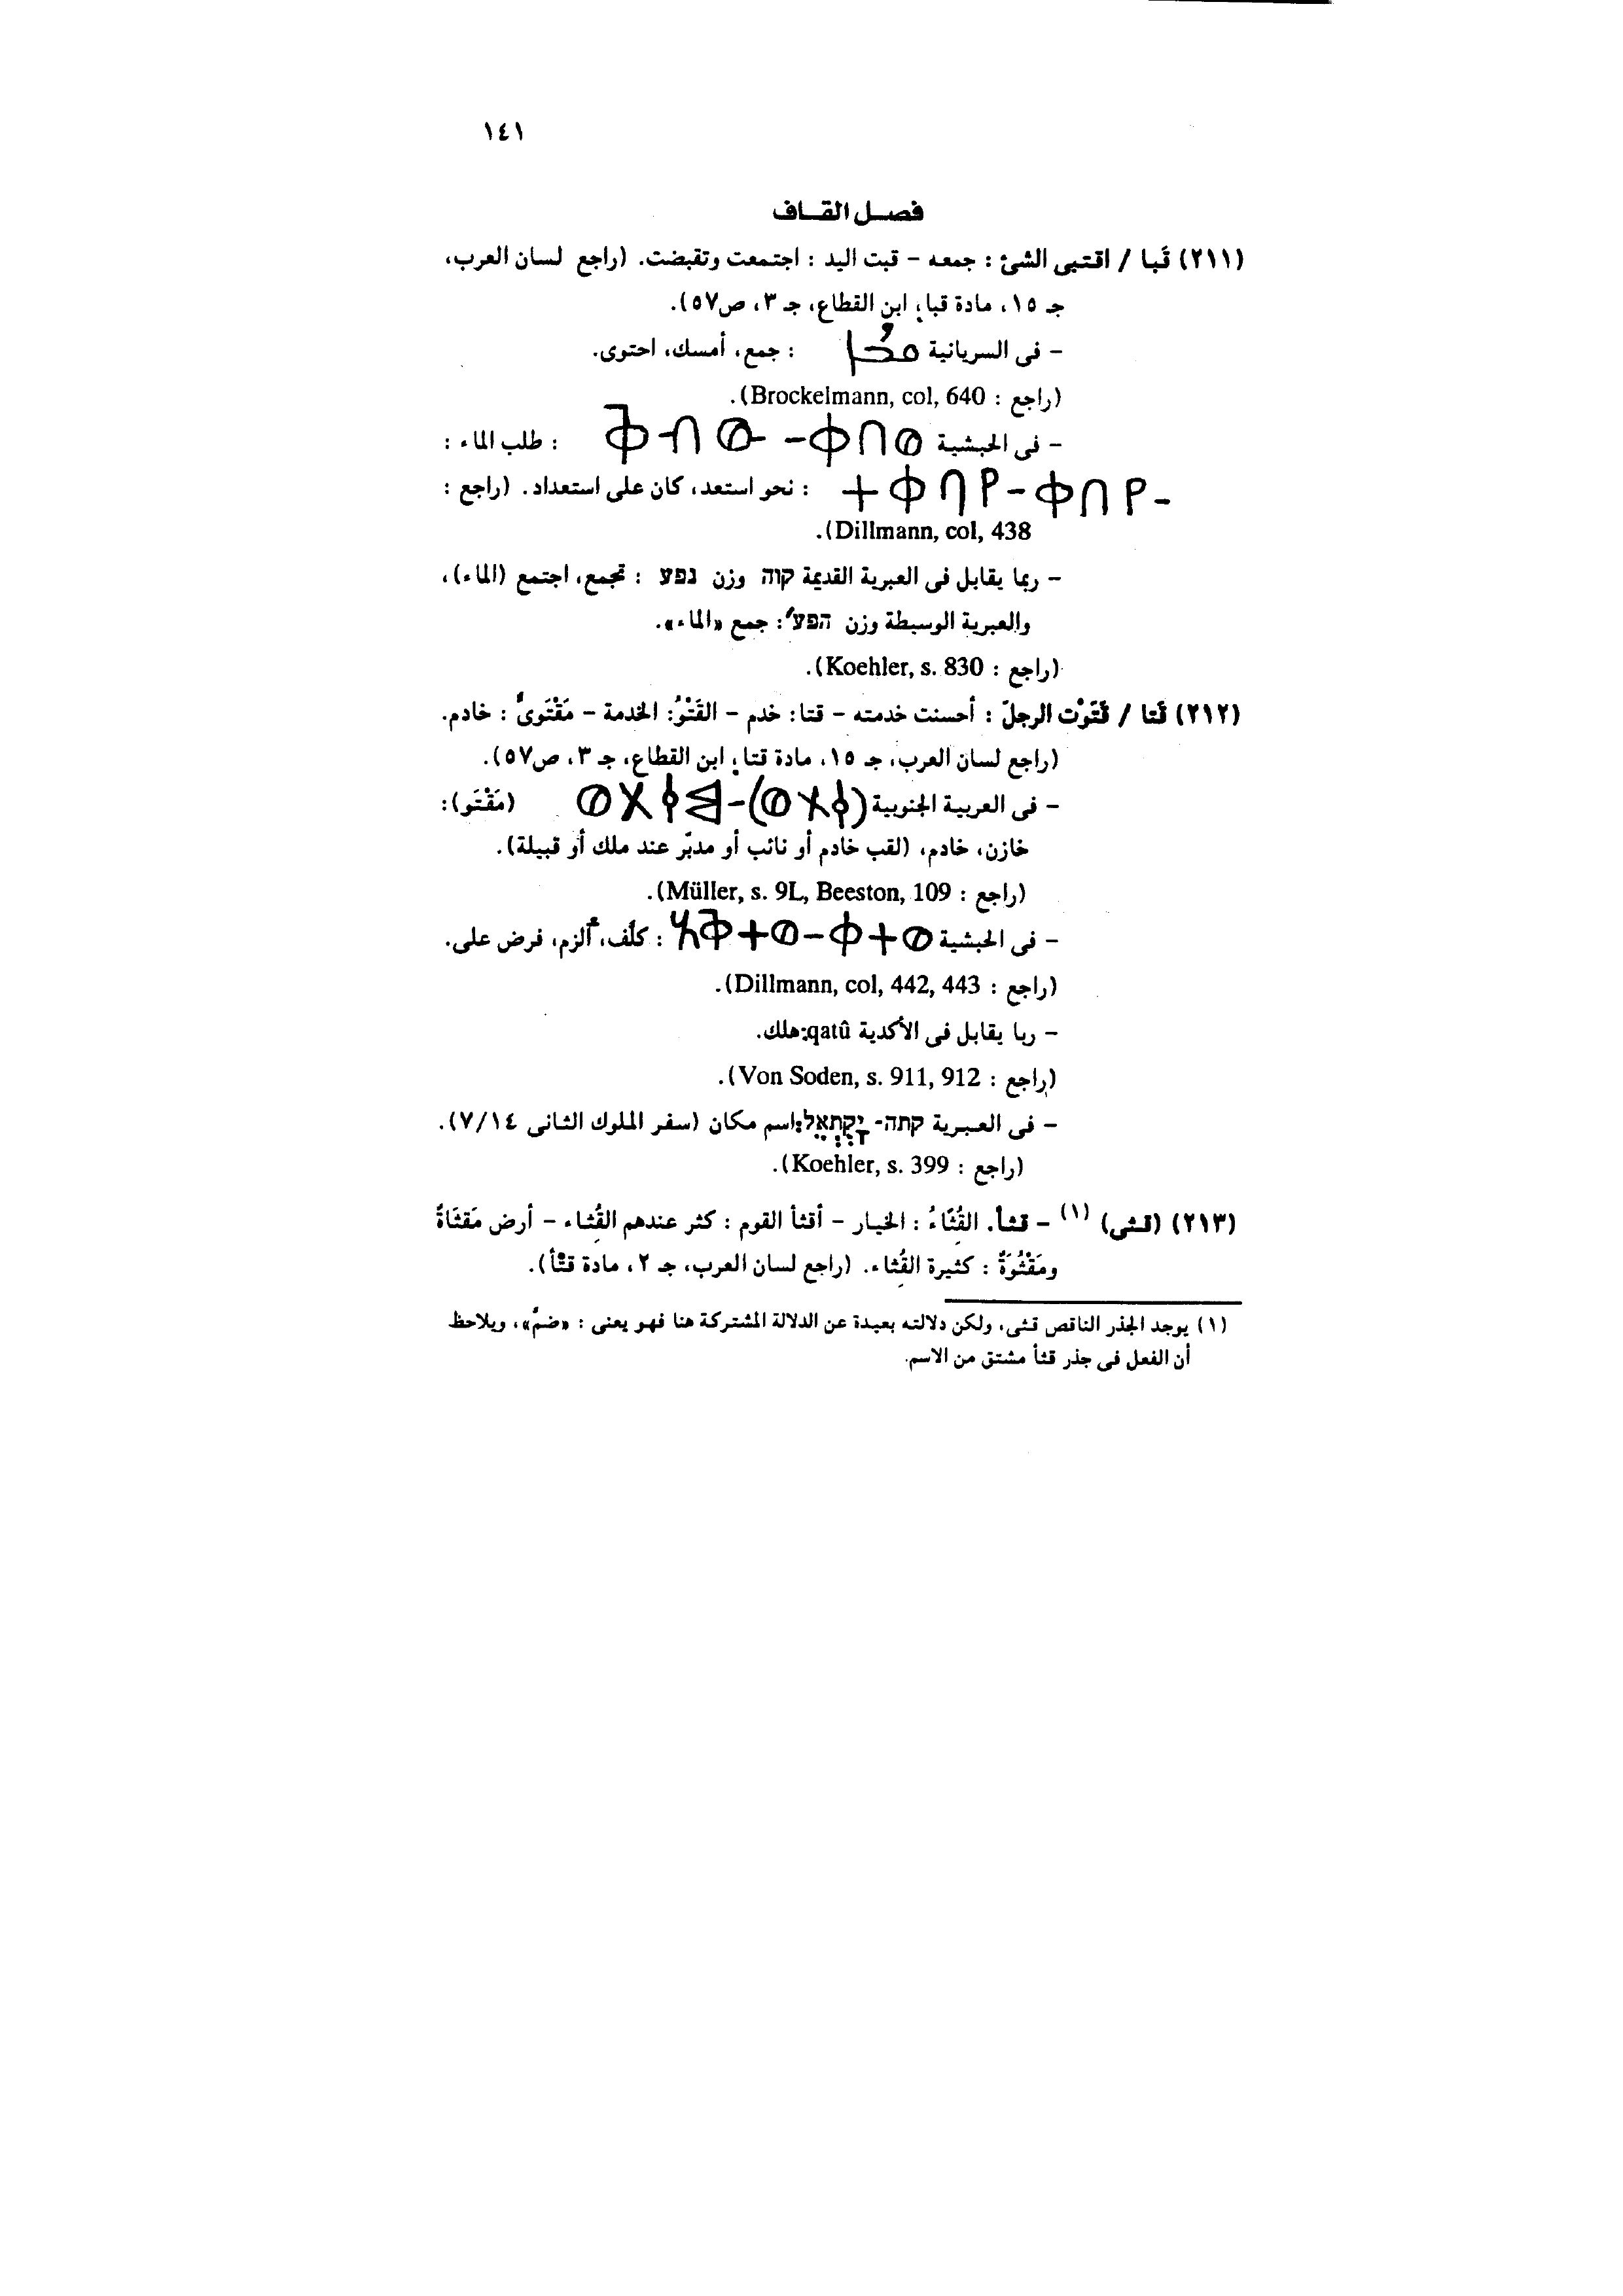 ١٤١
فصـل القـاف
(٢١١) قَبا / اقتبى الشئ : جمعه – قبت اليد : اجتمعت وتقبضت. (راجع لسان العرب،
جـ ١٥، مادة قبا؛ ابن القطاع، جـ ٣، ص٥٧).
– فى السريانية : جمع، أمسك، احتوى.
(راجع : Brockelmann, col, 640).
– فى الحبشية ቀበወ – : طلب الماء :
: نحو استعد، كان على استعداد. (راجع :
Dillmann, col, 438).
– ربما يقابل فى العبرية القديمة קוה وزن נפע : تجمع، اجتمع (الماء)،
والعبرية الوسيطة وزن הפע׳: جمع «الماء».
(راجع : Koehler, s. 830).
(٢١٢) قَتا / قَتَوْت الرجلَ : أحسنت خدمته – قتا: خدم – القَتْوُ: الخدمة – مَقْتَوىُّ : خادم.
(راجع لسان العرب، جـ ١٥، مادة قتا؛ ابن القطاع، جـ ٣، ص٥٧).
– فى العربية الجنوبية (𐩤𐩩𐩥)–𐩣𐩤𐩩𐩥 (مَقْتَو):
خازن، خادم، (لقب خادم أو نائب أو مدبّر عند ملك أو قبيلة).
(راجع : Müller, s. 9L, Beeston, 109).
– فى الحبشية ቀተወ – : كلّف، ألزم، فرض على.
(راجع : Dillmann, col, 442, 443).
– ربا يقابل فى الأكدية qatû:هلك.
(راجع : Von Soden, s. 911, 912).
– فى العبرية קתה- יָקְתְאֵל:اسم مكان (سفر الملوك الثانى ٧/١٤).
(راجع : Koehler, s. 399).
(٢١٣) (قـثى) (١) – قثـأ. القُثّاءُ : الخيار – أقثأ القوم : كثر عندهم القُثاء – أرض مَقثَاةُ
ومَقْثُوَةٌ : كثيرة القُثاء. (راجع لسان العرب، جـ ٢، مادة قثأ).
(١) يوجد الجذر الناقص قـثى، ولكن دلالته بعيدة عن الدلالة المشتركة هنا فهو يعنى : «ضمُّ»، ويلاحظ
أن الفعل فى جذر قثأ مشتق من الاسم.